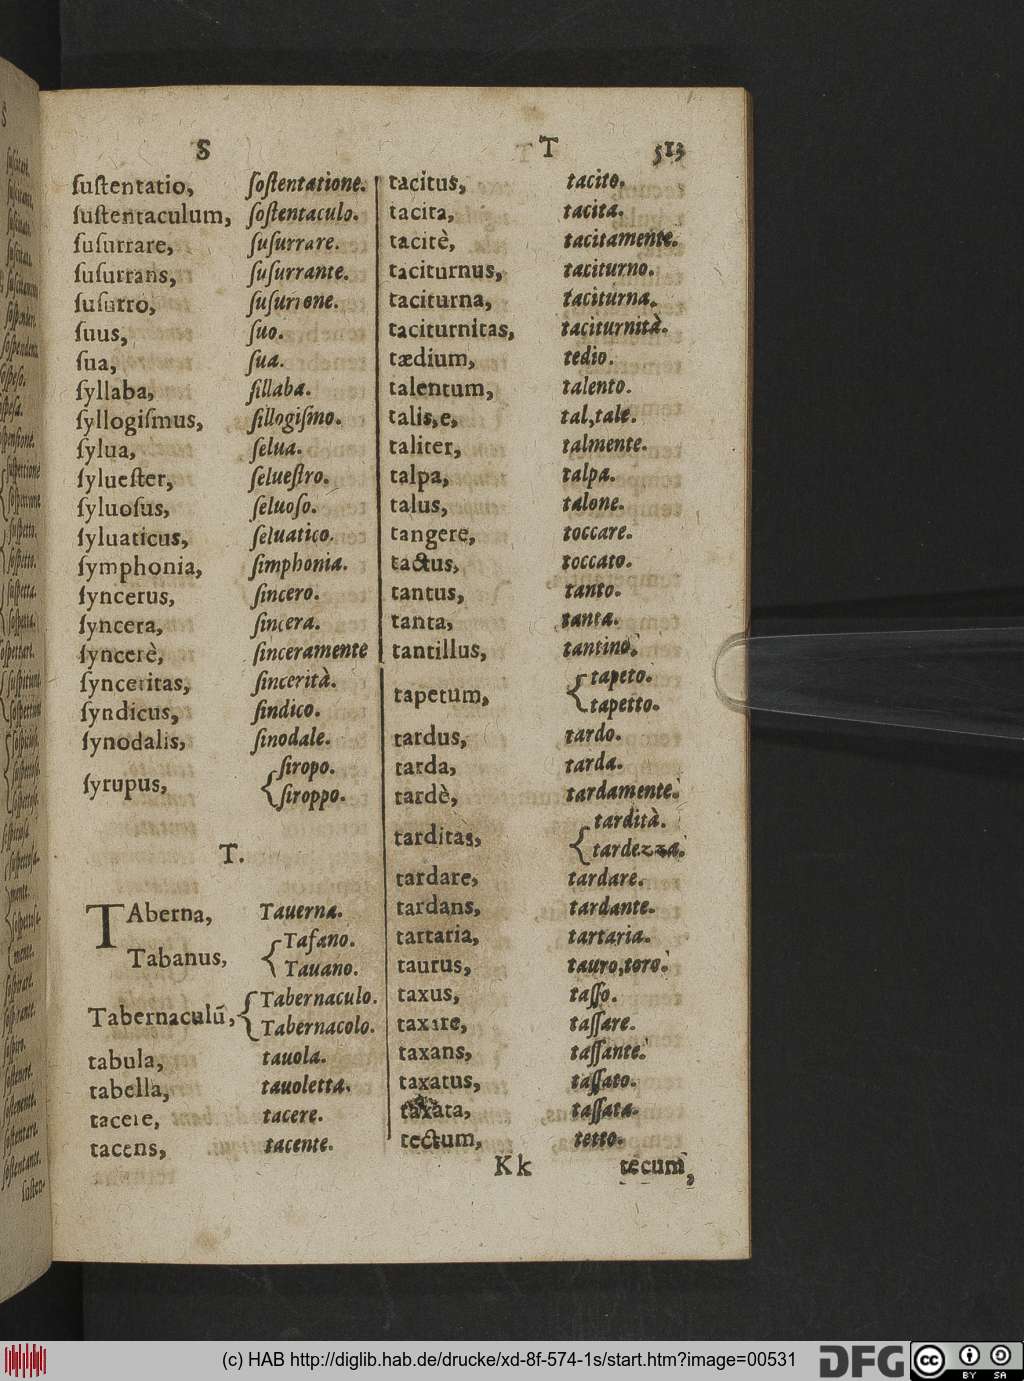 S T 513
ſuſtentatio, ſoſtentatione.
ſuſtentaculum, ſoſtentaculo.
ſuſurrare, ſuſurrare.
ſuſurrans, ſuſurrante.
ſuſurro, ſuſurrone.
ſuus, ſuo.
ſua, ſua.
ſyllaba, ſillaba.
ſyllogiſmus, ſillogiſmo.
ſylua, ſelua.
ſylueſter, ſelueſtro.
ſyluoſus, ſeluoſo.
ſyluaticus, ſeluatico.
ſymphonia, ſimphonia.
ſyncerus, ſincero.
ſyncera, ſincera.
ſyncerè, ſinceramente
ſynceritas, ſincerità.
ſyndicus, ſindico.
ſynodalis, ſinodale.
ſyrupus, {ſiropo.
ſiroppo.
T.
TAberna, Tauerna.
Tabanus, {Tafano.
Tauano.
Tabernaculū, {Tabernaculo.
Tabernacolo.
tabula, tauola.
tabella, tauoletta.
tacere, tacere.
tacens, tacente.
tacitus, tacito.
tacita, tacita.
tacitè, tacitamente.
taciturnus, taciturno.
taciturna, taciturna.
taciturnitas, taciturnità.
tædium, tedio.
talentum, talento.
talis,e, tal,tale.
taliter, talmente.
talpa, talpa.
talus, talone.
tangere, toccare.
tactus, toccato.
tantus, tanto.
tanta, tanta.
tantillus, tantino.
tapetum, {tapeto.
tapetto.
tardus, tardo.
tarda, tarda.
tardè, tardamente.
tarditas, {tardità.
tardezza.
tardare, tardare.
tardans, tardante.
tartaria, tartaria.
taurus, tauro,toro.
taxus, taſſo.
taxare, taſſare.
taxans, taſſante.
taxatus, taſſato.
taxata, taſſata.
tectum, tetto.
Kk tecum,
(c) HAB http://diglib.hab.de/drucke/xd-8f-574-1s/start.htm?image=00531
DFG
cc BY SA